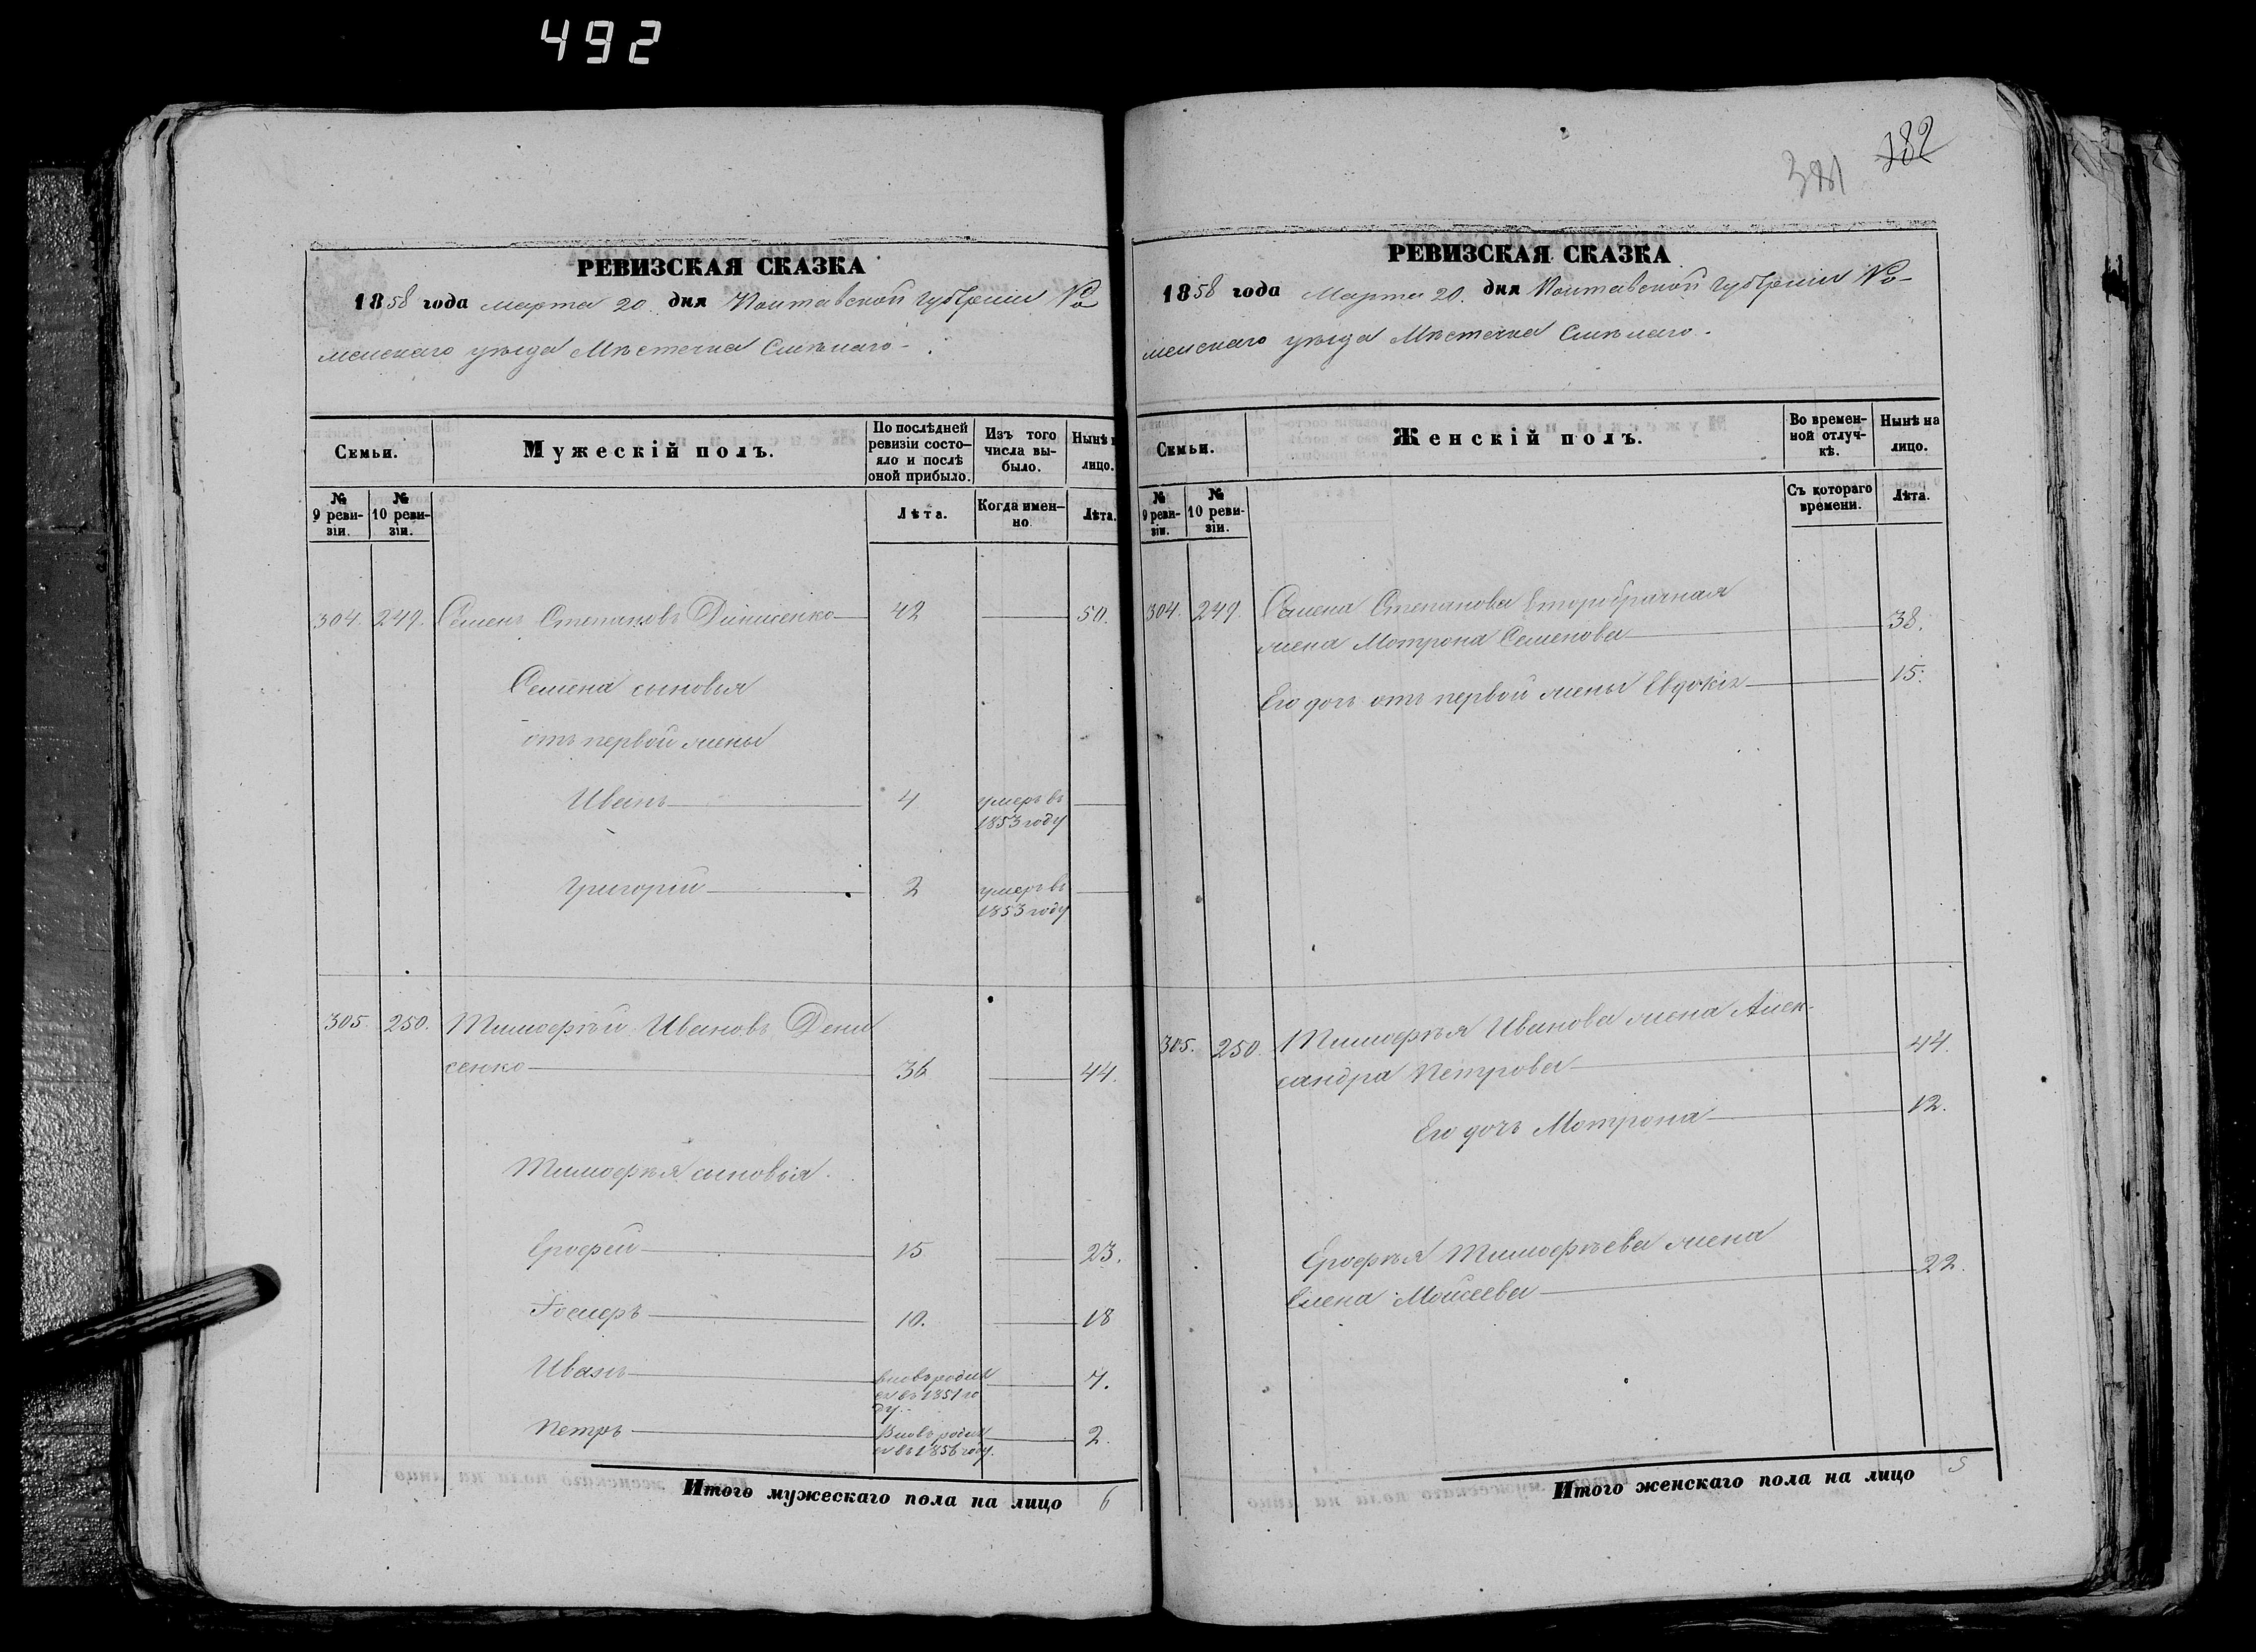 492
381 382
РЕВИЗСКАЯ СКАЗКА
1858 года марта 20. дня Полтавской губерніи Ро-
менскаго уѣзда Мѣстечка Смѣлаго.
Семьи.
Мужескій полъ.
По послѣдней ревизіи состо-
яло и послѣ
оной прибыло.
Изъ того
числа вы-
было.
Нынѣ
лицо.
№
9 реви-
зіи.
№
10 реви-
зіи.
Лѣта.
Когда имен-
но.
Лѣта.
304. 249. Семенъ Степановъ Динисенко 42 50.
Семена сыновья
отъ первой жены
Иванъ 4 умеръ въ
1853 году
Григорій 2 умеръ въ
1853 году
305. 250. Тимофѣй Ивановъ Дени
сенко 36 44.
Тимофѣя сыновья.
Ерофей 15 23.
10. 18
Иванъ вновь родил
ся въ 1851 го
ду. 7.
Петръ Вновь родил
ся въ 1856 году. 2.
Итого мужескаго пола на лицо 6
РЕВИЗСКАЯ СКАЗКА
1858 года Марта 20. дня Полтавской губерніи Ро-
менскаго уѣзда Мѣстечка Смѣлаго.
Семьи.
Женскій полъ.
Во времен-
ной отлуч-
кѣ.
Нынѣ на
лицо.
№
9 реви-
зіи.
№
10 реви-
зіи.
Съ котораго
времени.
Лѣта.
304. 249. Семена Степанова второбрачная
жена Мотрона Семенова 38.
Его дочь отъ первой жены Евдокія 15.
305. 250. Тимофѣя Иванова жена Алек-
сандра Петрова 44.
Его дочь Мотрона 12.
Ерофѣя Тимофѣева жена
Елена Моисеева 22.
Итого женскаго пола на лицо 5